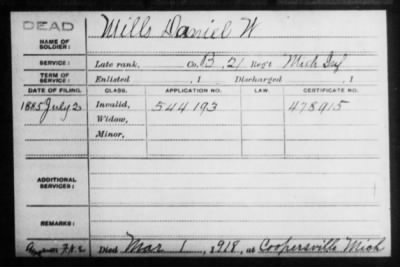 DEAD
NAME OF SOLDIER:
Mills Daniel W
SERVICE:
Late rank, Co. B, 21 Reg't Mich Inf
TERM OF SERVICE:
Enlisted , 1 Discharged , 1
DATE OF FILING. CLASS. APPLICATION NO. LAW. CERTIFICATE NO.
1885 July 2 Invalid, 544193 478915
Widow,
Minor,
ADDITIONAL SERVICES:
REMARKS:
Died Mar 1, 1918, at Coopersville Mich